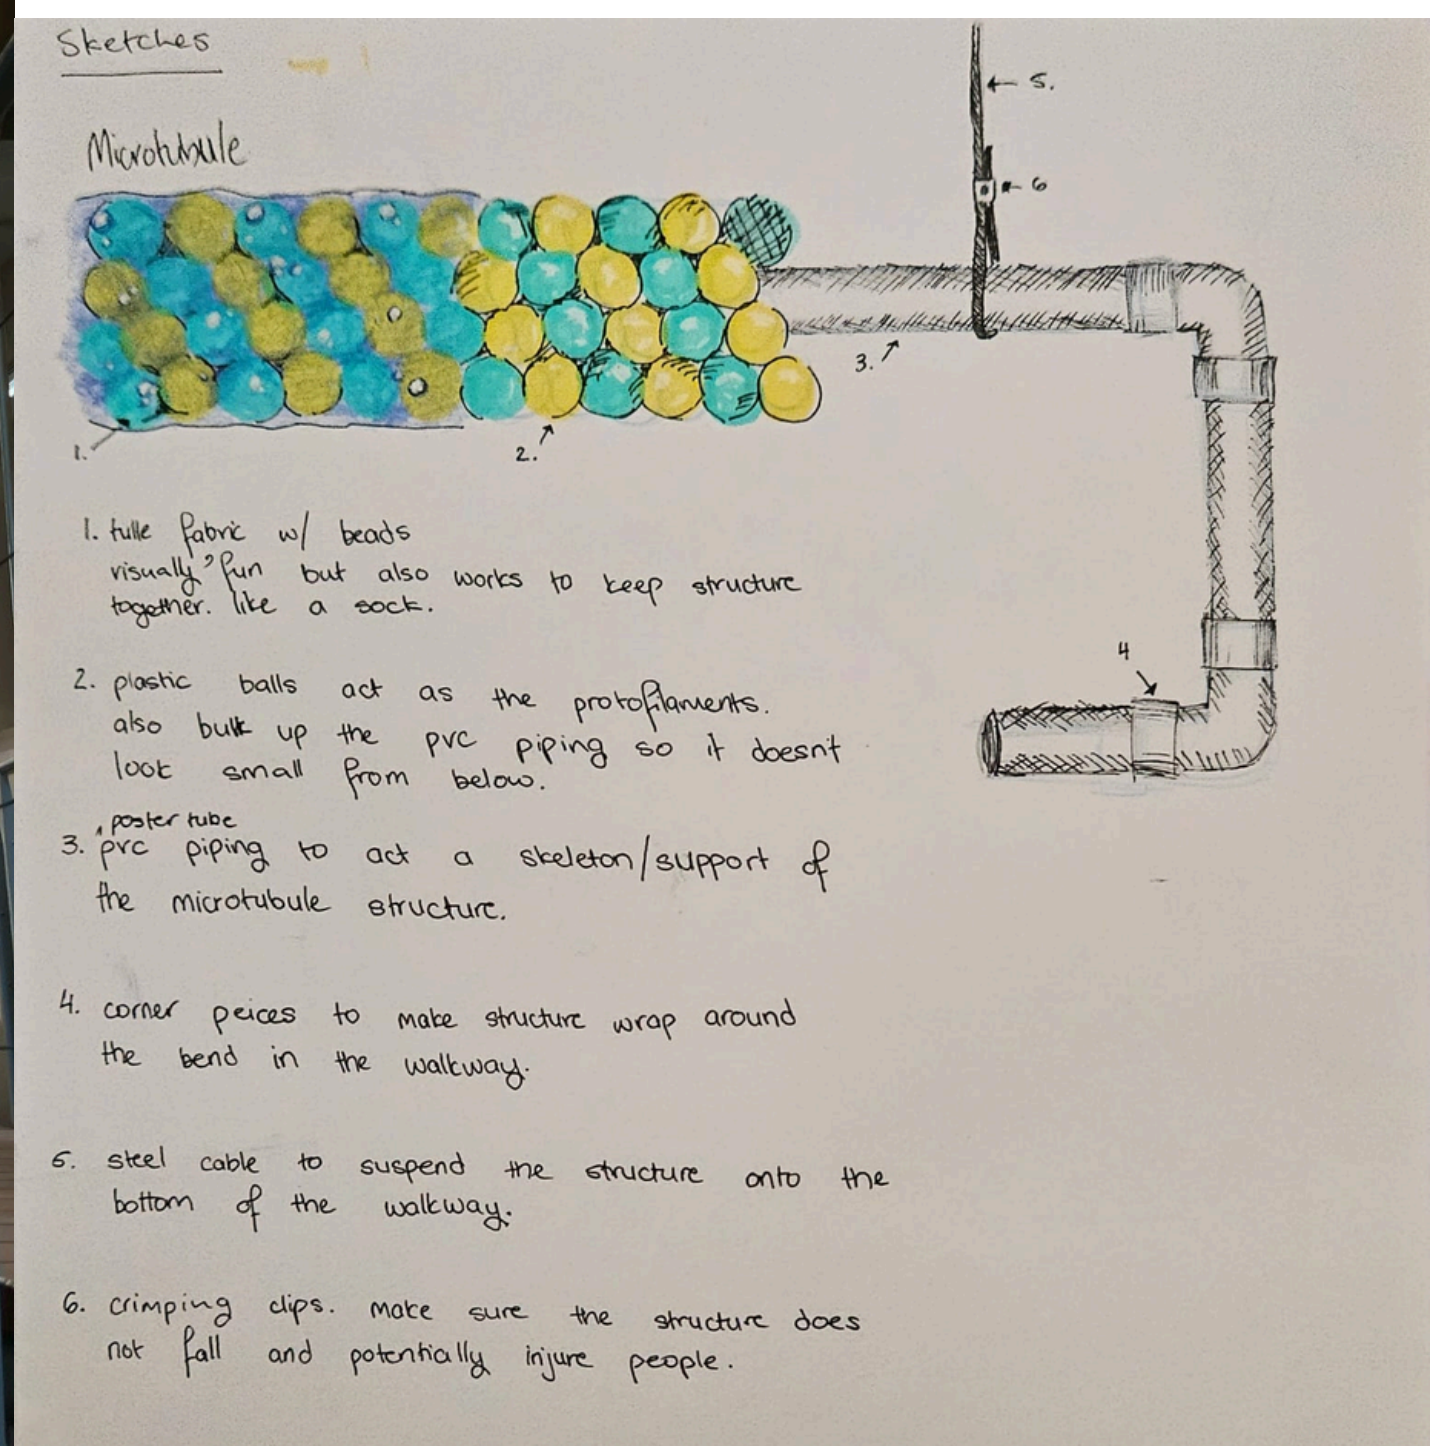 Sketches
Microtubule
← 5.
← 6
3.
1.
2.
4
1. tulle fabric w/ beads
visually fun but also works to keep structure
together. like a sock.
2. plastic balls act as the protofilaments.
also bulk up the pvc piping so it doesn't
look small from below.
poster tube
3. pvc piping to act a skeleton/support of
the microtubule structure.
4. corner peices to make structure wrap around
the bend in the walkway.
5. steel cable to suspend the structure onto the
bottom of the walkway.
6. crimping clips. make sure the structure does
not fall and potentially injure people.